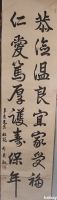 恭儉溫良宜家受福
仁愛篤厚護壽保年